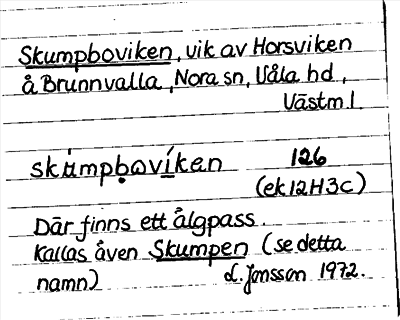 Skumpboviken, vik av Horsviken
å Brunnvalla, Nora sn, Våla hd,
Västm l.
skùmpḅωvíken 126
(ek 12H3c)
Där finns ett älgpass.
Kallas även Skumpen (se detta
namn) L. Jonsson 1972.